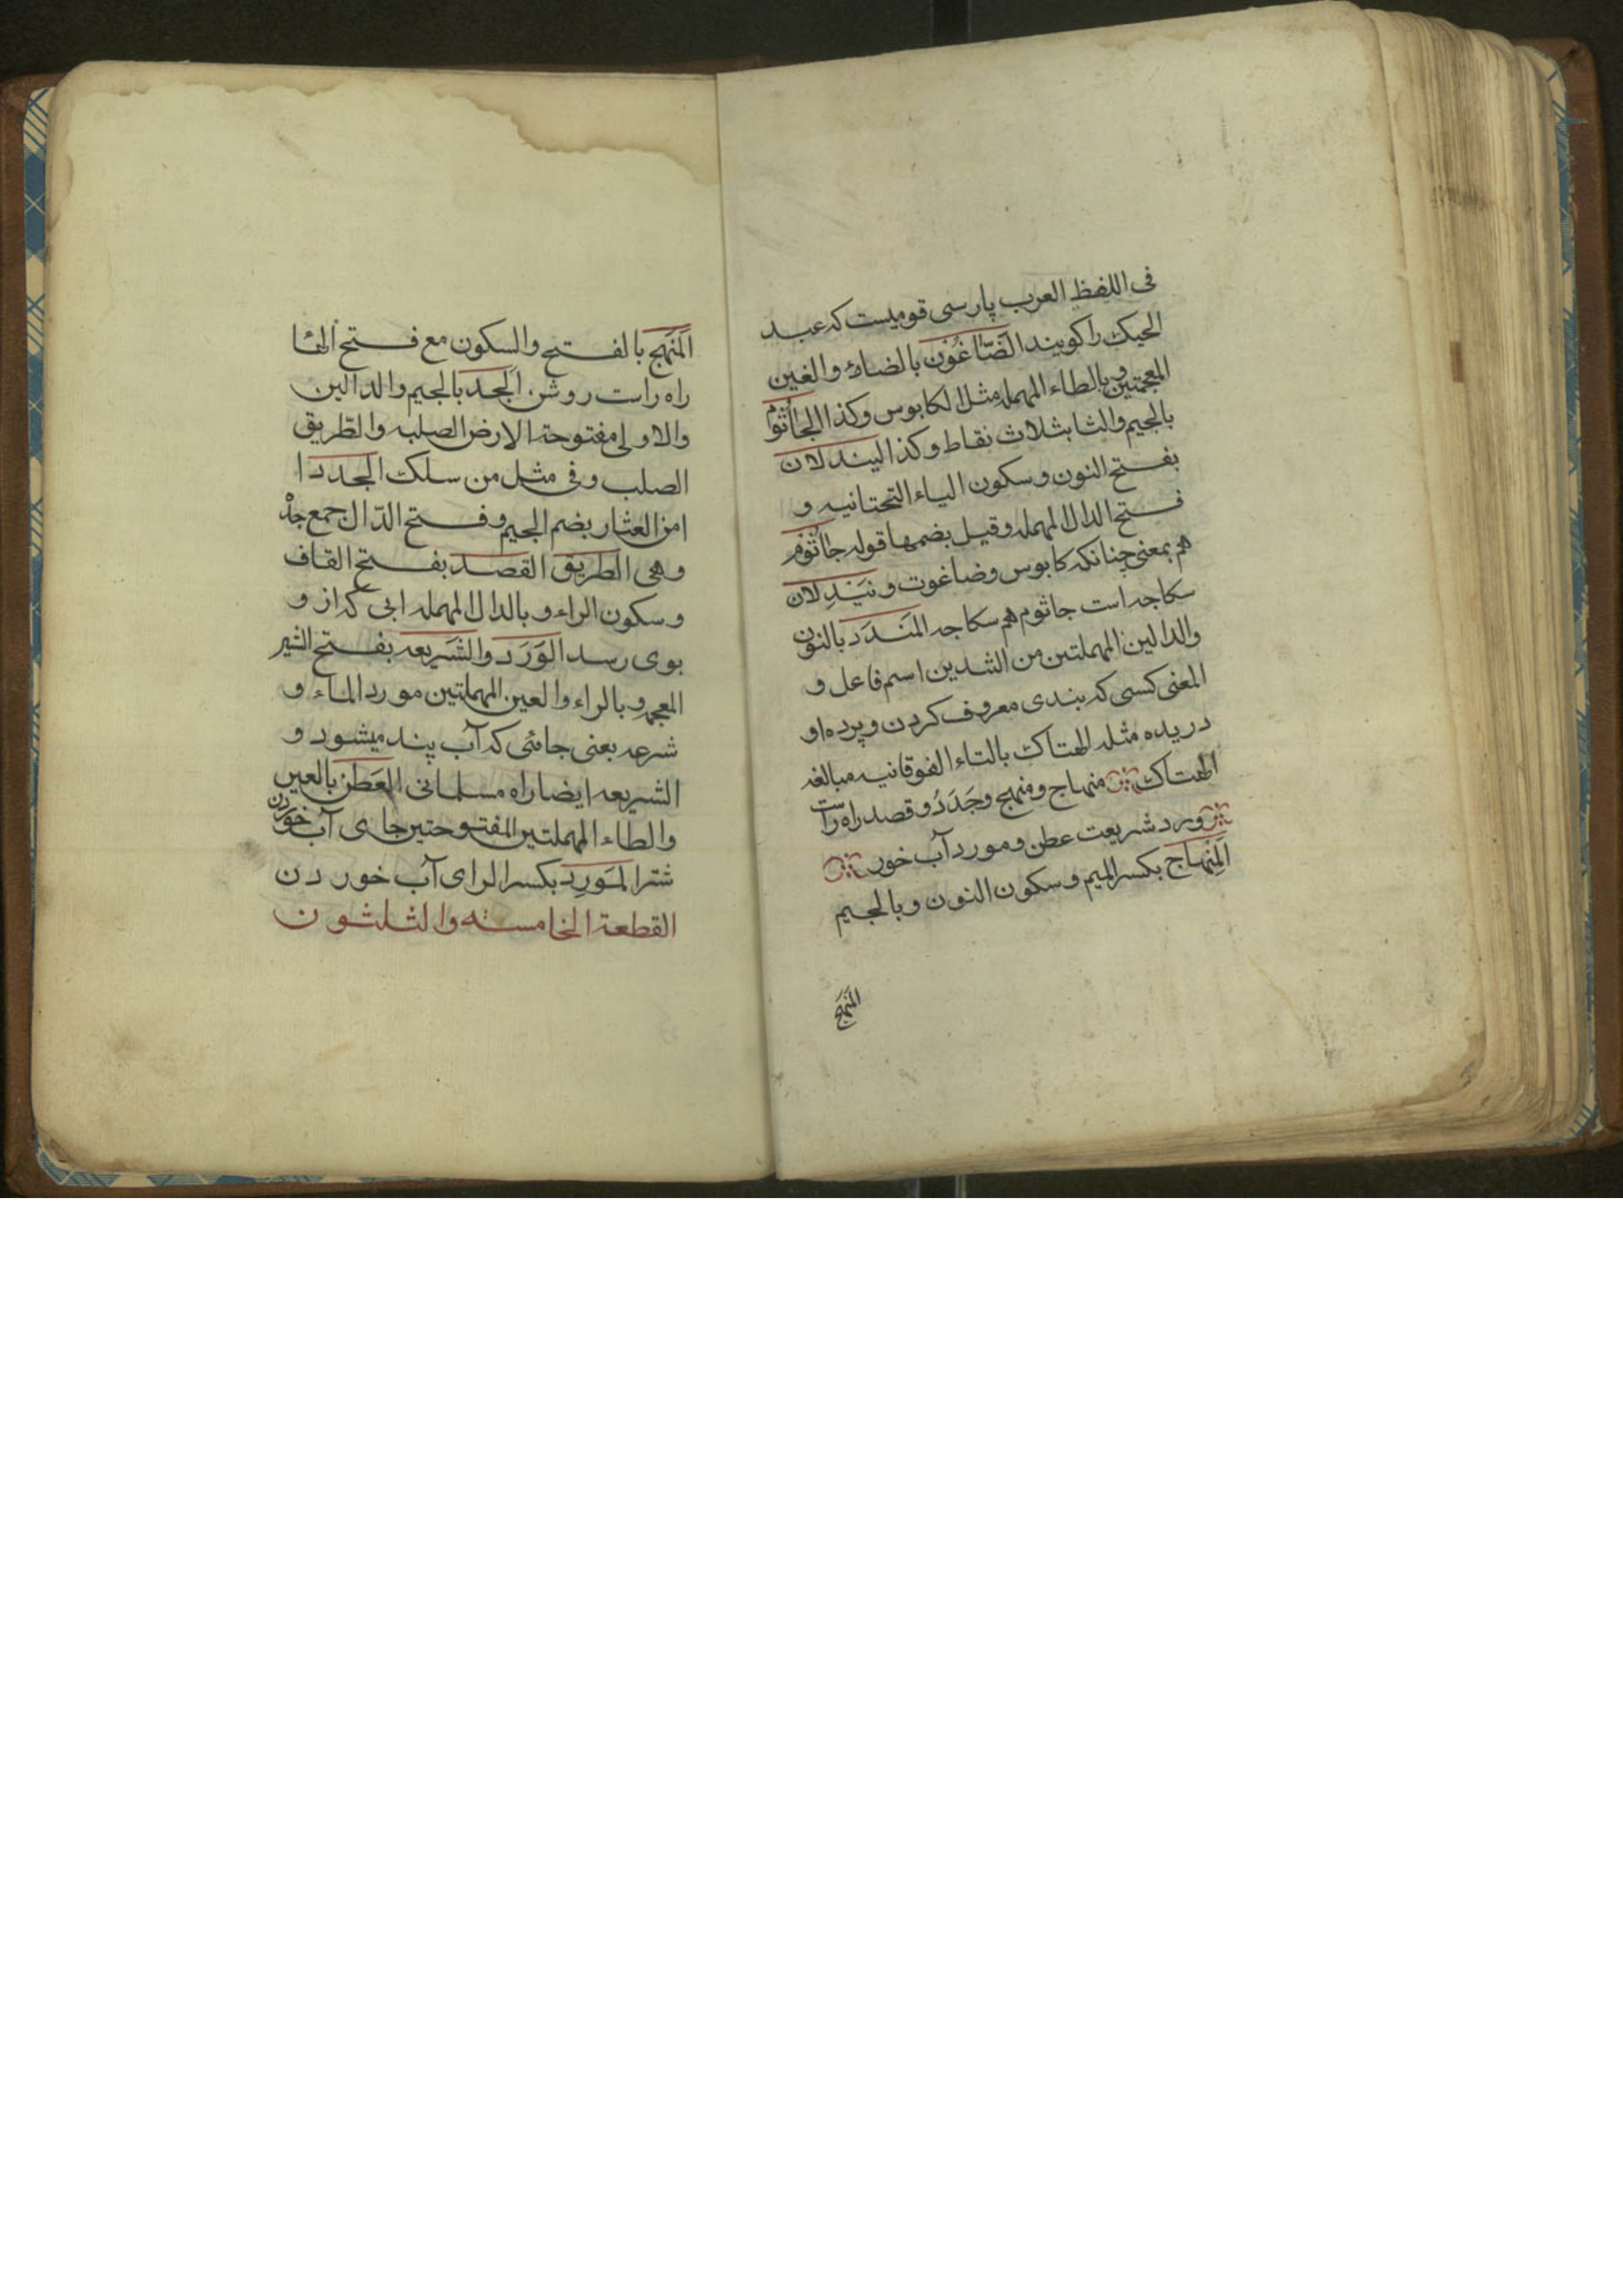 فی اللفظ العرب پارسی قومیست که عبد
الحیک را کویند الضاغون بالضاد والغین
المعجمتین وبالطاء المهمله مثل الکابوس وکذا الجاثوم
بالجیم والثا بثلاث نقاط وکذا الیندلان
بفتح النون وسکون الیاء التحتانیه و
فتح الدال المهمله وقیل بضمها قوله جاثوم
هم بمعنی چنانکه کابوس وضاغوت ونیندلان
سکاجه است جاثوم هم سکاجه المندد بالنون
والدالین المهملتین من الشدین اسم فاعل و
المعنی کسی که بندی معروف کردن و پرده او
دریده مثله الهتاک بالتاء الفوقانیه مبالغه
الهتاک منهاج ومنهج وجَدَدُ وقصد راه راست
ورد شریعت عطن ومورد آب خور
المِنهاج بکسر المیم وسکون النون وبالجیم
المَنهَج
المَنهَج بالفتح والسکون مع فتح الها
راه راست روشن الجدد بالجیم والدالین
والاولی مفتوحة الارض الصلبه والطریق
الصلب وفی مثل من سلک الجدد ا
امن العثار بضم الجیم وفتح الدّال جمع جدّ
وهی الطریق القصد بفتح القاف
وسکون الراء وبالدال المهمله ابی که از و
بوی رسد الوَرَد والشَریعه بفتح الشین
المعجمه وبالراء والعین المهملتین مورد الماء و
شرعه بعنی جائی که آب پند میشود و
الشریعه ایضا راه مسلمانی العَطَن بالعین
والطاء المهملتین المفتوحتین جای آب خوردن
شتر المَورِد بکسر الرای آب خوردن
القطعة الخامسته والثلثون